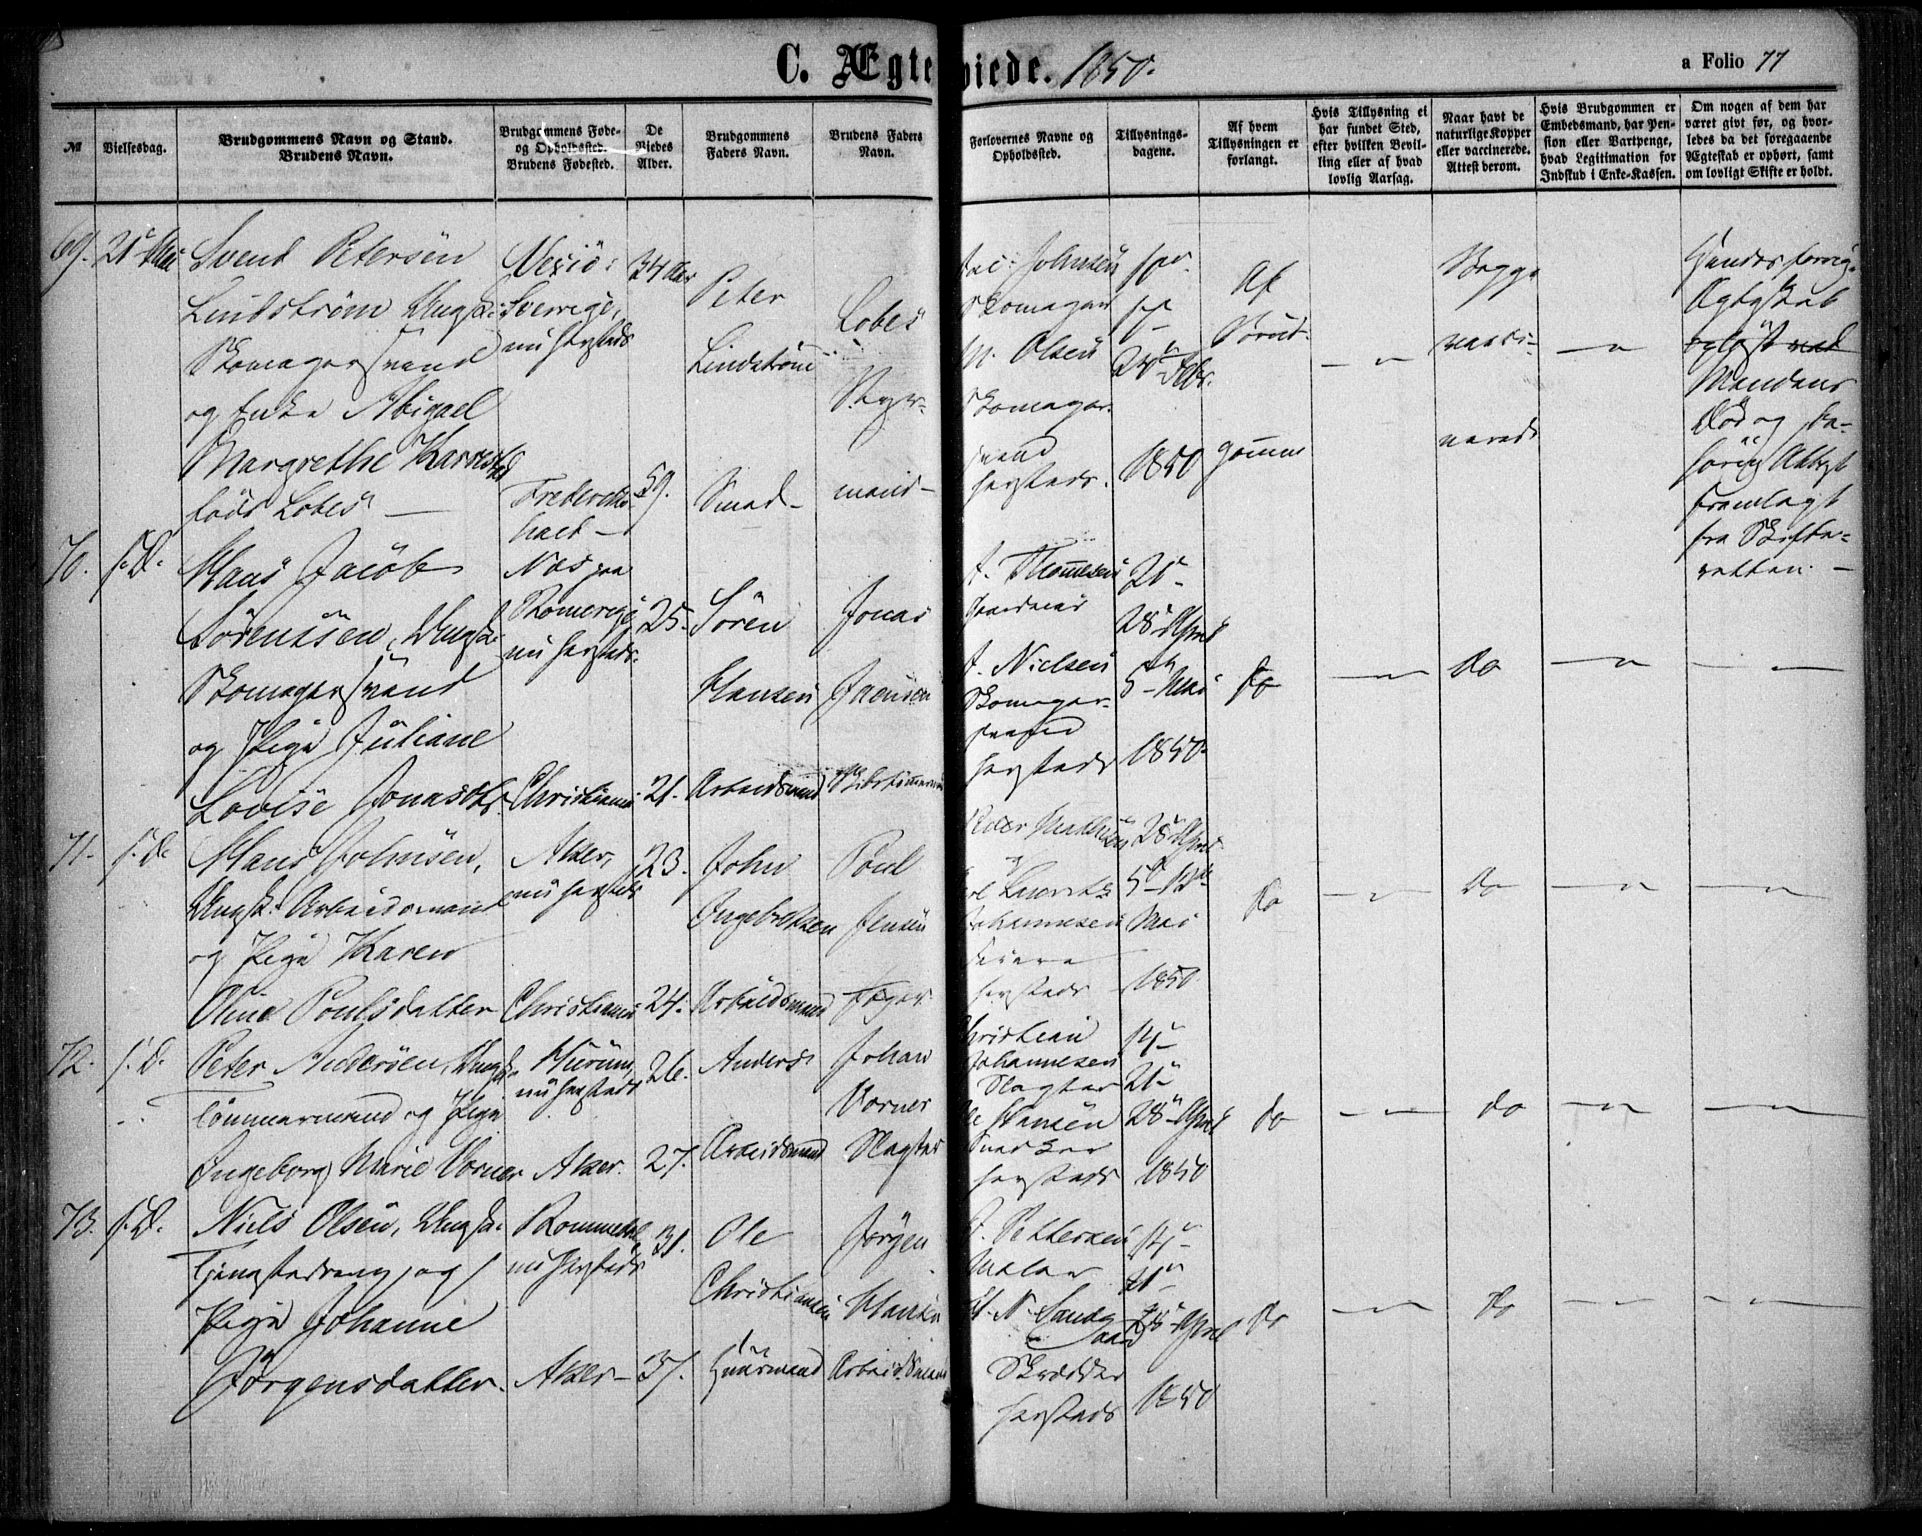 C. Ægteviede. 1850.
a Folio 77
№
Vielsesdag.
Brudgommens Navn og Stand.
Brudens Navn.
Brudgommens Føde-
og Opholdssted.
Brudens Fødested.
De
Viedes
Alder.
Brudgommens
Faders Navn.
Brudens Faders
Navn.
Forlovernes Navne og
Opholdssted.
Tillysnings-
dagene.
Af hvem
Tillysningen er
forlangt.
Hvis Tillysning ei
har fundet Sted,
efter hvilken Bevil-
ling eller af hvad
lovlig Aarsag.
Naar havt de
naturlige Kopper
eller vaccinerede.
Attest derom.
Hvis Brudgommen er
Embedsmand, har Pen-
sion eller Vartpenge,
hvad Legitimation for
Indskud i Enke-Kassen.
Om nogen af dem har
været givt før, og hvor-
ledes da det foregaaende
Ægteskab er ophørt, samt
om lovligt Skifte er holdt.
69.
21 Mai
Svend Petersen
Lindstrøm Ungk:
Skomagersvend
og Enke Abigael
Margrethe
født Lobes
Sverrige,
nu hersteds
Frederiks-
hald
34 Aar
59.
Peter
Lindstrøm
Smed
Lobes
Styr-
mand
Johnsen
Skomager
Olsen
Skomager
svend
hersteds.
24 Febr.
1850
Af
Brud-
gommen
Begge
vacci-
nerede
Hendes forrige
Ægteskab
opløst ved
Mandens
Død og
Attest
fremlagt
fra Skifte-
retten.
70.
s. D.
Hans Jacob
Sørenssen, Ungk.
Skomagersvend
og Pige Juliane
Lovise Jonasdtr.
Næs paa
Romerige
nu hersteds.
Christiania
25.
21.
Søren
Hansen
Arbeidsmand
Jonas
Jaensen
Thomesen
Nielsen
Skomager-
svend
hersteds
21
28 April
5 Mai
1850
do
do
71.
s. D.
Hans Johnsen,
Ungk. Arbeidsmand
og Pige Karen
Oline Poulsdatter
Aker,
nu hersteds
Christiania
23.
24.
John
Ingebretsen
Arbeidsmand
Poul
Jensen
Peder Mathisen
Johannesen
hersteds
28 April
5 12
Mai
1850
do
do
72.
s. D.
Peter Andersen, Ungk.
Tømmermand og Pige
Ingeborg Marie Vorner
Hurum,
nu hersteds
Aker.
26.
27.
Anders
Arbeidsmand
Johan
Vorner
Slagter
Christian
Johannesen
Slagter
Hansen
Snedker
hersteds
14
21
28 April
1850
do
do
73.
s. D.
Niels Olsen, Ungk.
Tjenestedreng og
Pige Johanne
Jørgensdatter.
Rommedal
nu hersteds
Aker
31.
37.
Ole
Christiansen
Huusmand
Jørgen
Hansen
Arbeidsmand
Pettersen
Maler
N.
Skrædder
hersteds
14
21
28 April
1850
do
do